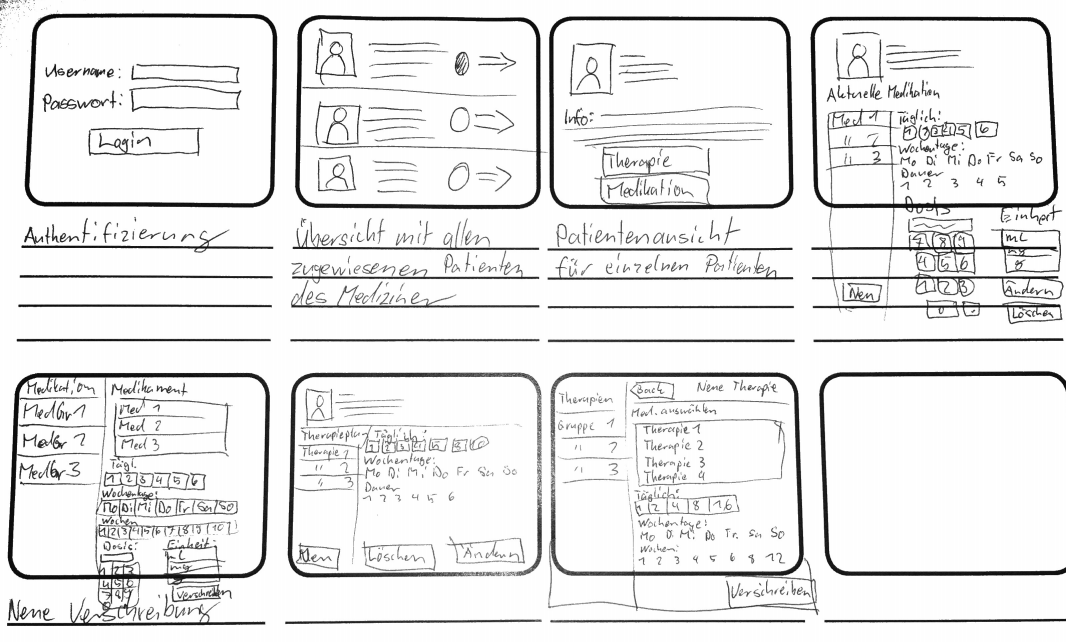 Username:
Passwort:
Login
Authentifizierung
Übersicht mit allen
zugewiesenen Patienten
des Mediziner
Info:
Therapie
Medikation
Patientenansicht
für einzelnen Patienten
Aktuelle Medikation
Med 1
" 2
" 3
Täglich:
1 2 3 4 5 6
Wochentage:
Mo Di Mi Do Fr Sa So
Dauer
1 2 3 4 5
Dosis
7 8 9
4 5 6
1 2 3
0 .
Einheit
mL
mg
g
Ändern
Löschen
Neu
Medikation
MedGr 1
MedGr 2
MedGr 3
Medikament
Med 1
Med 2
Med 3
Tägl.
1 2 3 4 5 6
Wochentage:
Mo Di Mi Do Fr Sa So
Wochen
1 2 3 4 5 6 7 8 9 10
Dosis:
1 2 3
4 5 6
7 8 9
Einheit:
mL
mg
Verschreiben
Neue Verschreibung
Therapieplan
Therapie 1
" 2
" 3
Täglich:
Wochentage:
Mo Di Mi Do Fr Sa So
Dauer
1 2 3 4 5 6
Neu
Löschen
Ändern
Therapien
Gruppe 1
" 2
" 3
Back
Neue Therapie
Med. auswählen
Therapie 1
Therapie 2
Therapie 3
Therapie 4
Täglich:
1 2 4 8 16
Wochentage:
Mo Di Mi Do Fr. Sa So
Wochen:
1 2 3 4 5 6 8 12
Verschreiben